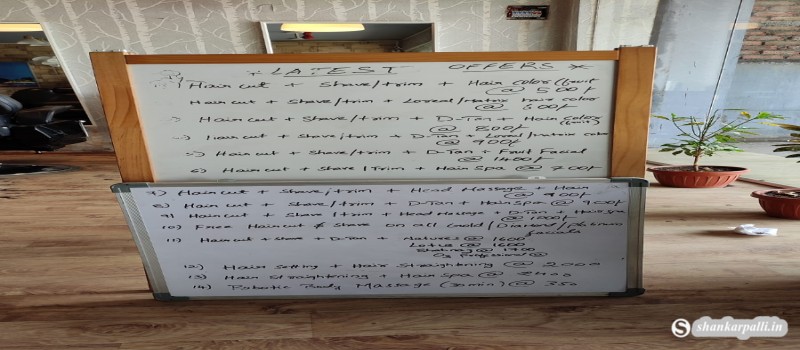 * LATEST OFFERS *
1) Hair cut + Shave/trim + Hair color (fruit
@ 500/-
Hair cut + Shave/trim + Loreal/Matrix hair color
@ 600/-
Hair cut + Shave/trim + D-Tan + Hair color
(fruit)
@ 800/-
Hair cut + Shave/trim + D-Tan + Loreal/Matrix color
@ 900/-
5) Hair cut + Shave/trim + D-Tan + Fruit Facial
@ 1400/-
6) Hair cut + Shave/Trim + Hair Spa @ 700/-
7) Hair cut + Shave/trim + Head Massage + Hair
8) Hair cut + Shave/trim + D-Tan + Hair Spa @ 900/-
9) Hair cut + Shave/trim + Head Massage + D-Tan + Hair spa
@ 1000/-
10) Free Hair cut & Shave on all Gold/Diamond/Platinum
facials
11) Hair cut + Shave + D-Tan + Natures @ 1600
Lotus @ 1600
@ 1700
O3 Professional @
12) Hair Setting + Hair Straightning @ 2000
13) Hair Straightning + Hair Spa @ 2400
14) Robotic Body Massage (30min) @ 350
S shankarpalli.in